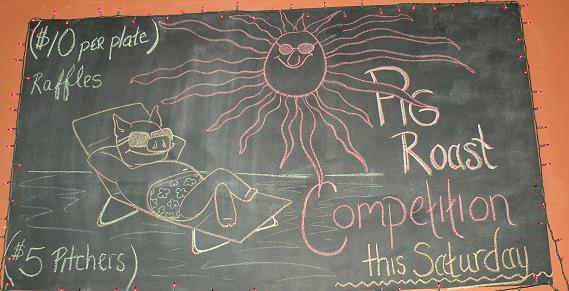 ($10 per plate)
Raffles
Pig
Roast
Competition
this Saturday
($5 Pitchers)